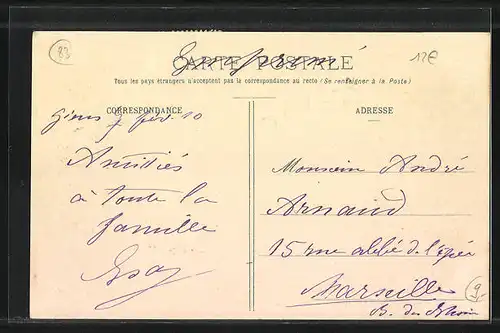 83
12€
Imprimé
CARTE POSTALE
Tous les pays étrangers n'acceptent pas la correspondance au recto (Se renseigner à la Poste)
CORRESPONDANCE
ADRESSE
7 fév. 10
Amitiés
à toute la
famille
Monsieur André
Arnaud
15 rue abbé de l'Epée
Marseille
B. du Rhône
9